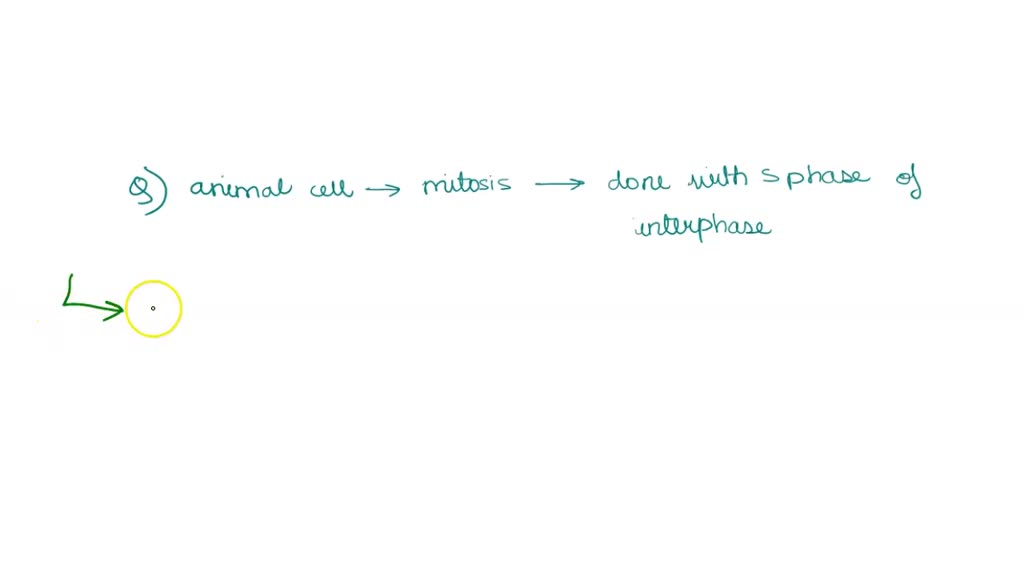 Q) animal cell → mitosis → done with S phase of
interphase